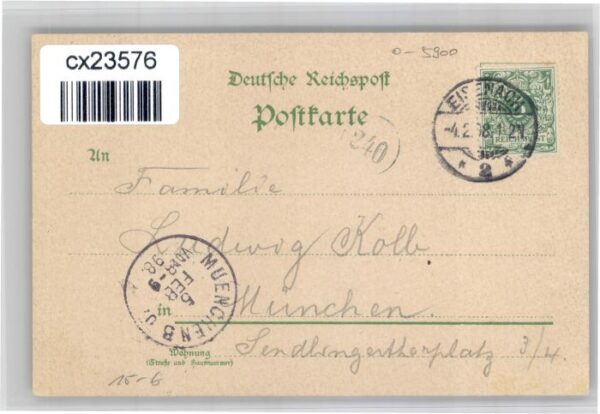 cx23576
0-5900
Deutsche Reichspost
Postkarte
EISENACH
2
240
An
Familie
Ludwig Kolb
MUENCHEN
VOR
8-9
5
FEB
98.
in München.
Wohnung
(Straße und Hausnummer)
Sendlingerthorplatz 3/4.
15-6